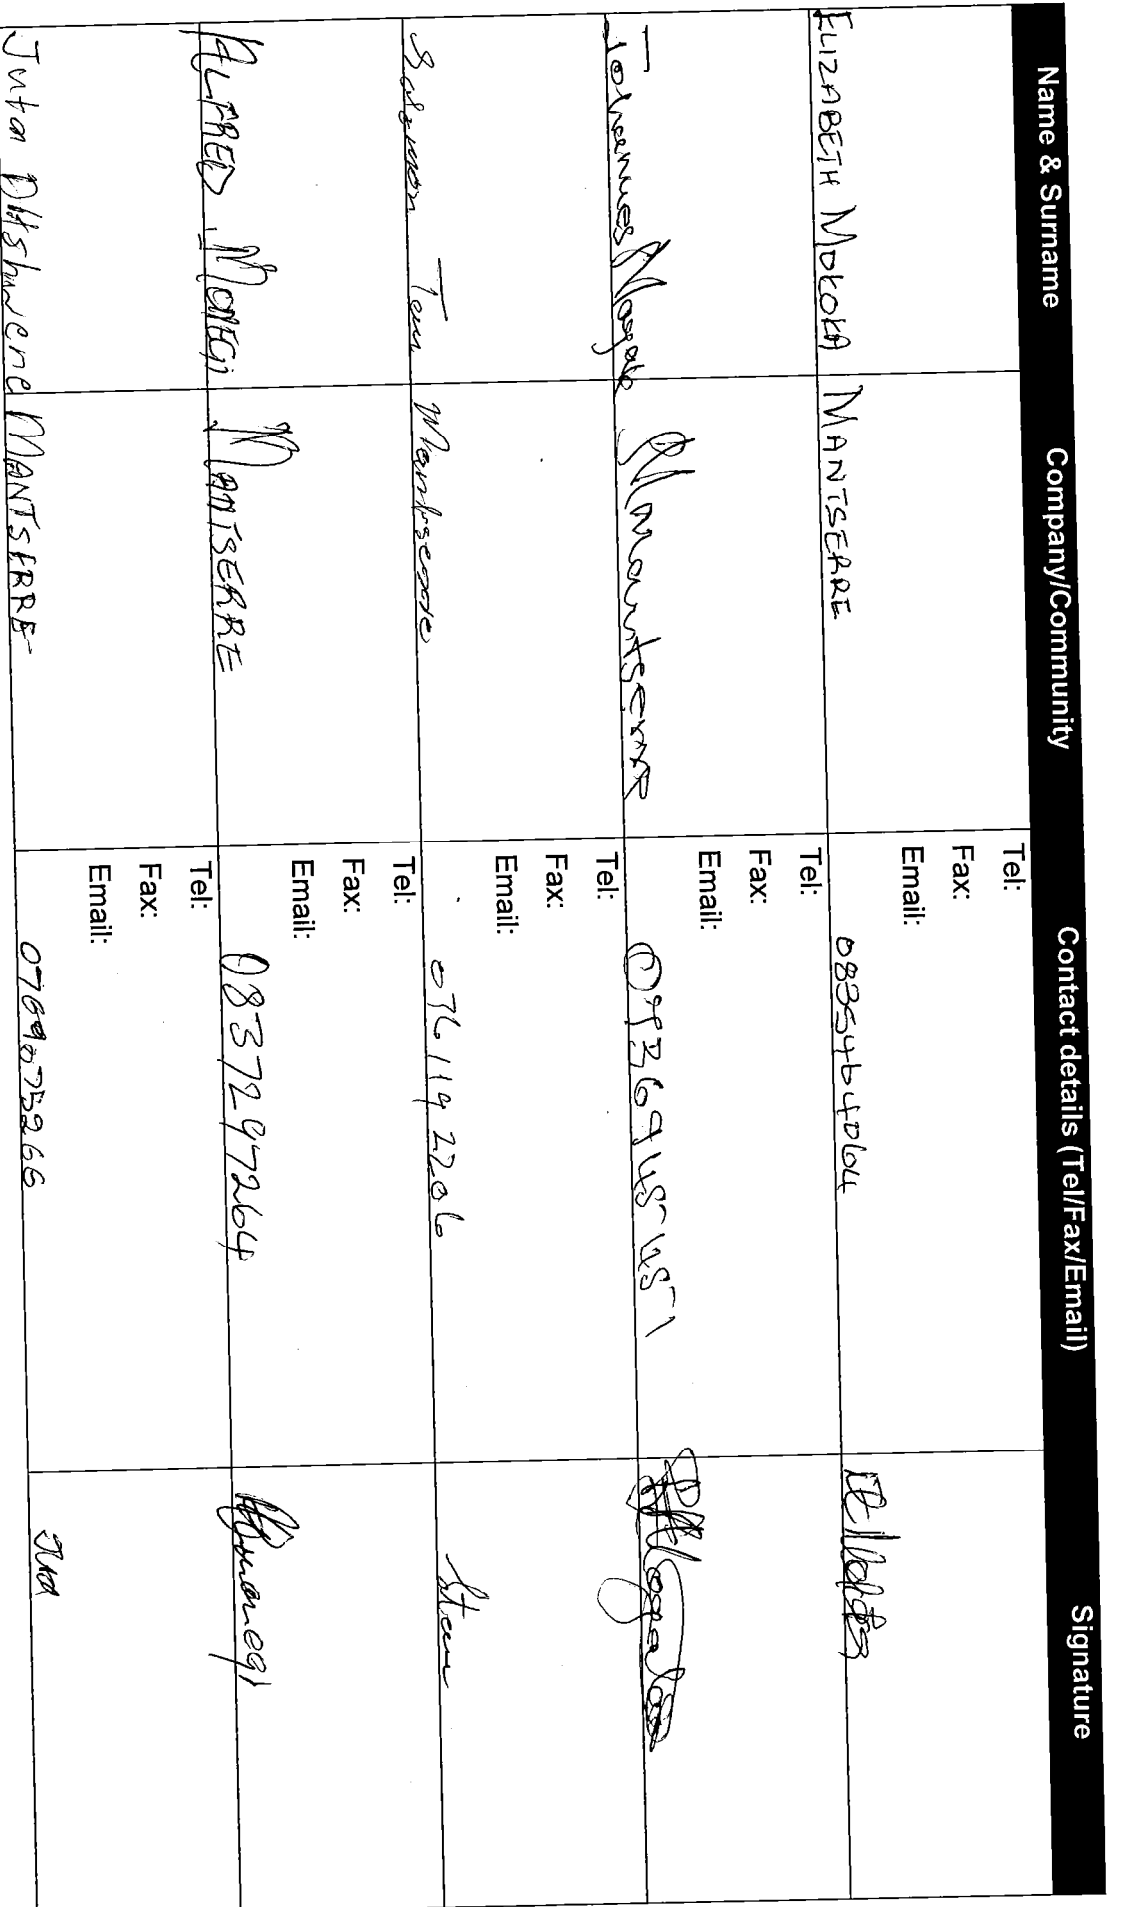 Name & Surname Company/Community Contact details (Tel/Fax/Email) Signature
Tel:
Fax:
Email:
ELIZABETH MOKOKA MANTSERRE 0835464064
Tel:
Fax:
Email:
Johannes Magale Mantserre
Tel:
Fax:
Email:
Solomon Tau Mantserre 076 119 2206
Tel:
Fax:
Email:
ALFRED MONEGI MANTSERRE 0837297264
Tel:
Fax:
Email:
Juta Ditshwene MANTSERRE 0769075266